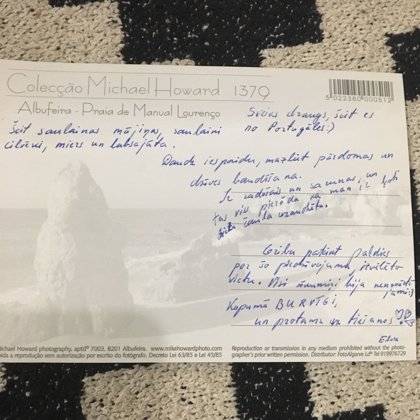 Colecção Michael Howard 1379
Albufeira - Praia de Manual Lourenço
5 022380 000512
Sveiss draugs, šeit es
no Portugāles:)
Šeit saulainas mājiņas, saulaini
cilvēki, miers un labsajūta.
Daudz iespaidu, mazliet pārdomas un
dzīves baudīšana.
Ir radošais un
tas viss pierāda ka man ir ļoti
Gribu pateikt paldies
par šo piedzīvojumu izvēlēto
vietu. Visi bija
Kopumā BURVĪGI,
un protams un tici anos
Elva
Michael Howard photography, aptdº 7003, 8201 Albufeira. www.mikehowardphoto.com
a reprodução sem autorização por escrito do fotógrafo. Decreto Lei 63/85 e Lei 45/85
Reproduction or transmission in any medium prohibited without the photo-
grapher's prior written permission. Distributor: FotoAlgarve Ldª Tel 919976729